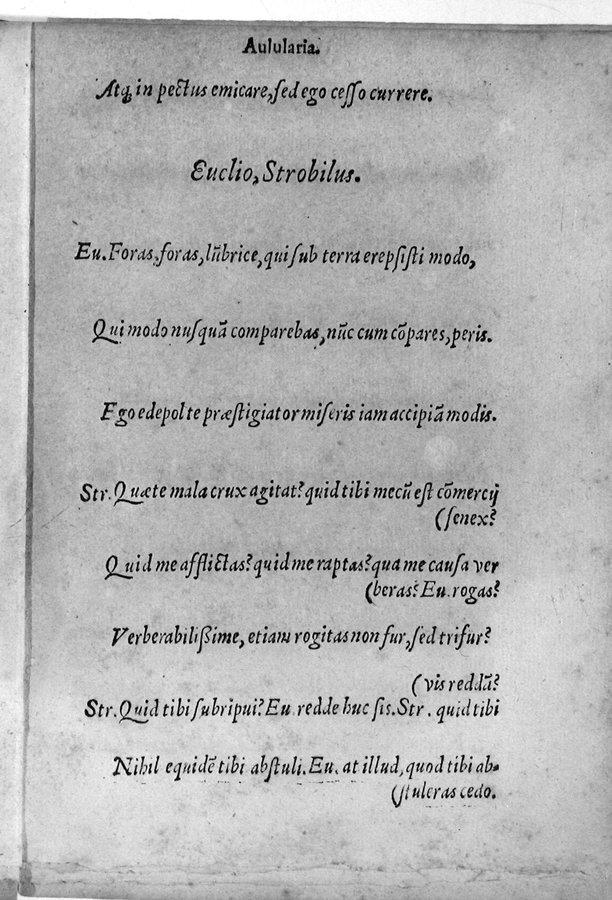 Aulularia.
Atq; in pectus emicare, ſed ego ceſſo currere.
Euclio, Strobilus.
Eu. Foras, foras, lũbrice, qui ſub terra erepſiſti modo,
Qui modo nuſquã comparebas, nũc cum cõpares, peris.
Ego edepol te præſtigiator miſeris iam accipiã modis.
Str. Quæ te mala crux agitat? quid tibi mecũ eſt cõmercij
(ſenex?
Quid me afflictas? quid me raptas? qua me cauſa ver
(beras? Eu. rogas?
Verberabilißime, etiam rogitas non fur, ſed trifur?
(vis reddã?
Str. Quid tibi ſubripui? Eu redde huc ſis. Str. quid tibi
Nihil equidẽ tibi abſtuli. Eu. at illud, quod tibi ab-
(ſtuleras cedo.